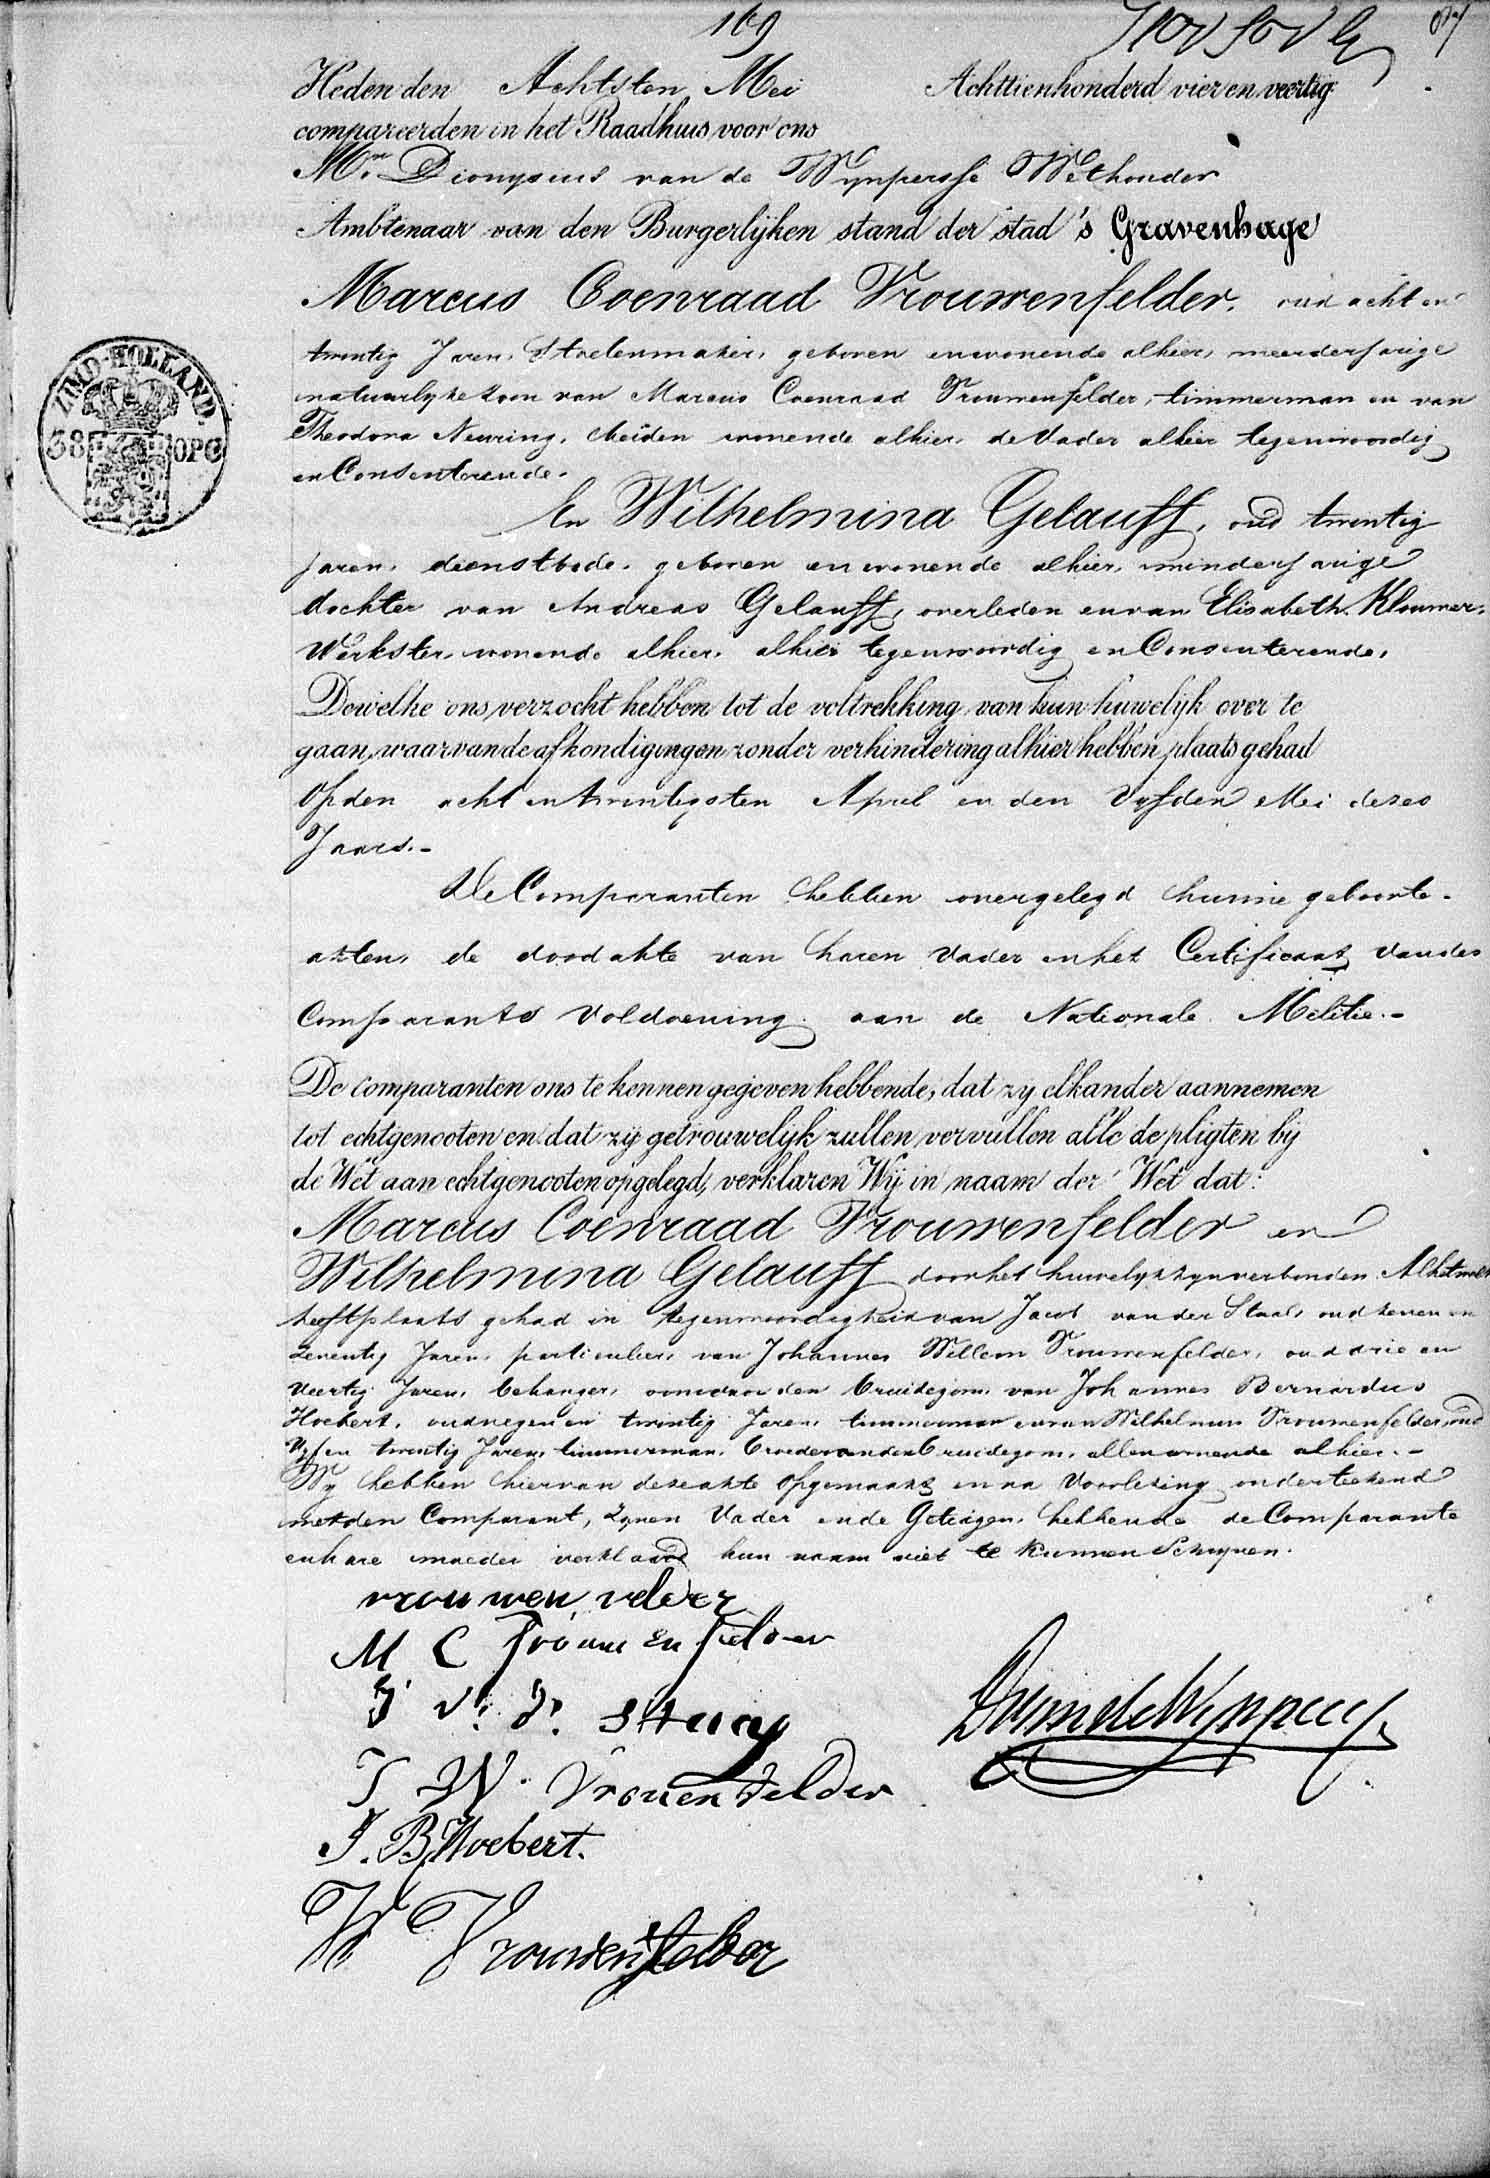 169
Heden den Achtsten Mei Achttienhonderd vier en veertig
compareerden in het Raadhuis voor ons
Mr. Dionysius van de Wijnpersse Wethouder
Ambtenaar van den Burgerlijken stand der stad 's Gravenhage
Marcus Coenraad Vrouwenfelder, oud acht en
twintig Jaren, Stoelenmaker, geboren en wonende alhier, meerderjarige
natuurlyke zoon van Marcus Coenraad Vrouwenfelder, timmerman en van
Theodora Neuring, beiden wonende alhier, de Vader alhier tegenwoordig
en Consenterende.
ZUID-HOLLAND.
38 OPC
En Wilhelmina Gelauff, oud twintig
jaren, dienstbode, geboren en wonende alhier, minderjarige
dochter van Andreas Gelauff, overleden en van Elisabeth
Werkster, wonende alhier, alhier tegenwoordig en Consenterende,
Dewelke ons verzocht hebben tot de voltrekking van hun huwelijk over te
gaan, waarvan de afkondigingen zonder verhindering alhier hebben plaats gehad
Op den acht en twintigsten April en den Vyfden Mei dezes
Jaars.-
De Comparanten hebben overgelegd hunne geboorte-
akten, de doodakte van haren Vader en het Certificaat van des
Comparants Voldoening aan de Nationale Militie.-
De comparanten ons te kennen gegeven hebbende, dat zy elkander aannemen
tot echtgenooten en dat zij getrouwelijk zullen vervullen alle de pligten bij
de Wet aan echtgenooten opgelegd, verklaren Wij in naam der Wet dat:
Marcus Coenraad Vrouwenfelder en
Wilhelmina Gelauff door het huwelyk zyn verbonden. Al hetwelk
heeft plaats gehad in tegenwoordigheid van Jacob van der Staal, oud zeven en
zeventig Jaren, particulier, van Johannes Willem Vrouwenfelder, oud drie en
Veertig Jaren, behanger, oom van den bruidegom, van Johannes Bernardus
Hoebert, oud negen en twintig Jaren, timmerman en van Wilhelmus Vrouwenfelder, oud
Vyf en twintig Jaren, timmerman, broeder van den bruidegom, allen wonende alhier.-
Wy hebben hiervan deze akte Opgemaakt en na Voorlezing onderteekend
met den Comparant, zynen Vader en de Getuigen, hebbende de Comparante
en hare moeder verklaard hun naam niet te kunnen Schryven.
vrouwen velder
M C Frouwenfelder
J v. d. Staay
J W. Vrouenvelder
J. B. Hoebert.
W Vrouwenfelder